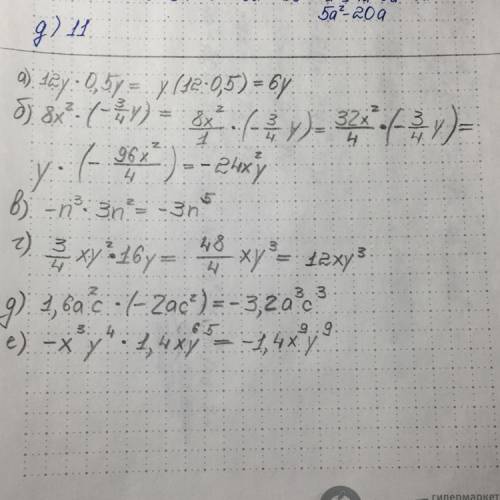 5a²-20a
g) 11
а) 12y · 0,5y = y(12·0,5) = 6y
б) 8x² · (-3/4 y) = 8x²/1 · (-3/4 y) = 32x²/4 · (-3/4 y) =
y · (- 96x²/4) = -24x²y
в) -n³ · 3n² = -3n⁵
г) 3/4 xy² · 16y = 48/4 xy³ = 12xy³
g) 1,6a²c · (-2ac²) = -3,2a³c³
е) -x³y⁴ · 1,4x⁶y⁵ = -1,4x⁹y⁹
гипермаркет